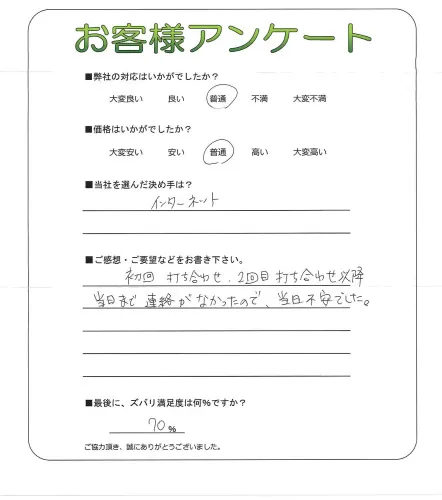 お客様アンケート
■弊社の対応はいかがでしたか?
大変良い 良い 普通 不満 大変不満
■価格はいかがでしたか?
大変安い 安い 普通 高い 大変高い
■当社を選んだ決め手は?
インターネット
■ご感想・ご要望などをお書き下さい。
初回 打ち合わせ、2回目 打ち合わせ以降
当日まで 連絡が なかったので、当日不安でした。
■最後に、ズバリ満足度は何%ですか?
70%
ご協力頂き、誠にありがとうございました。